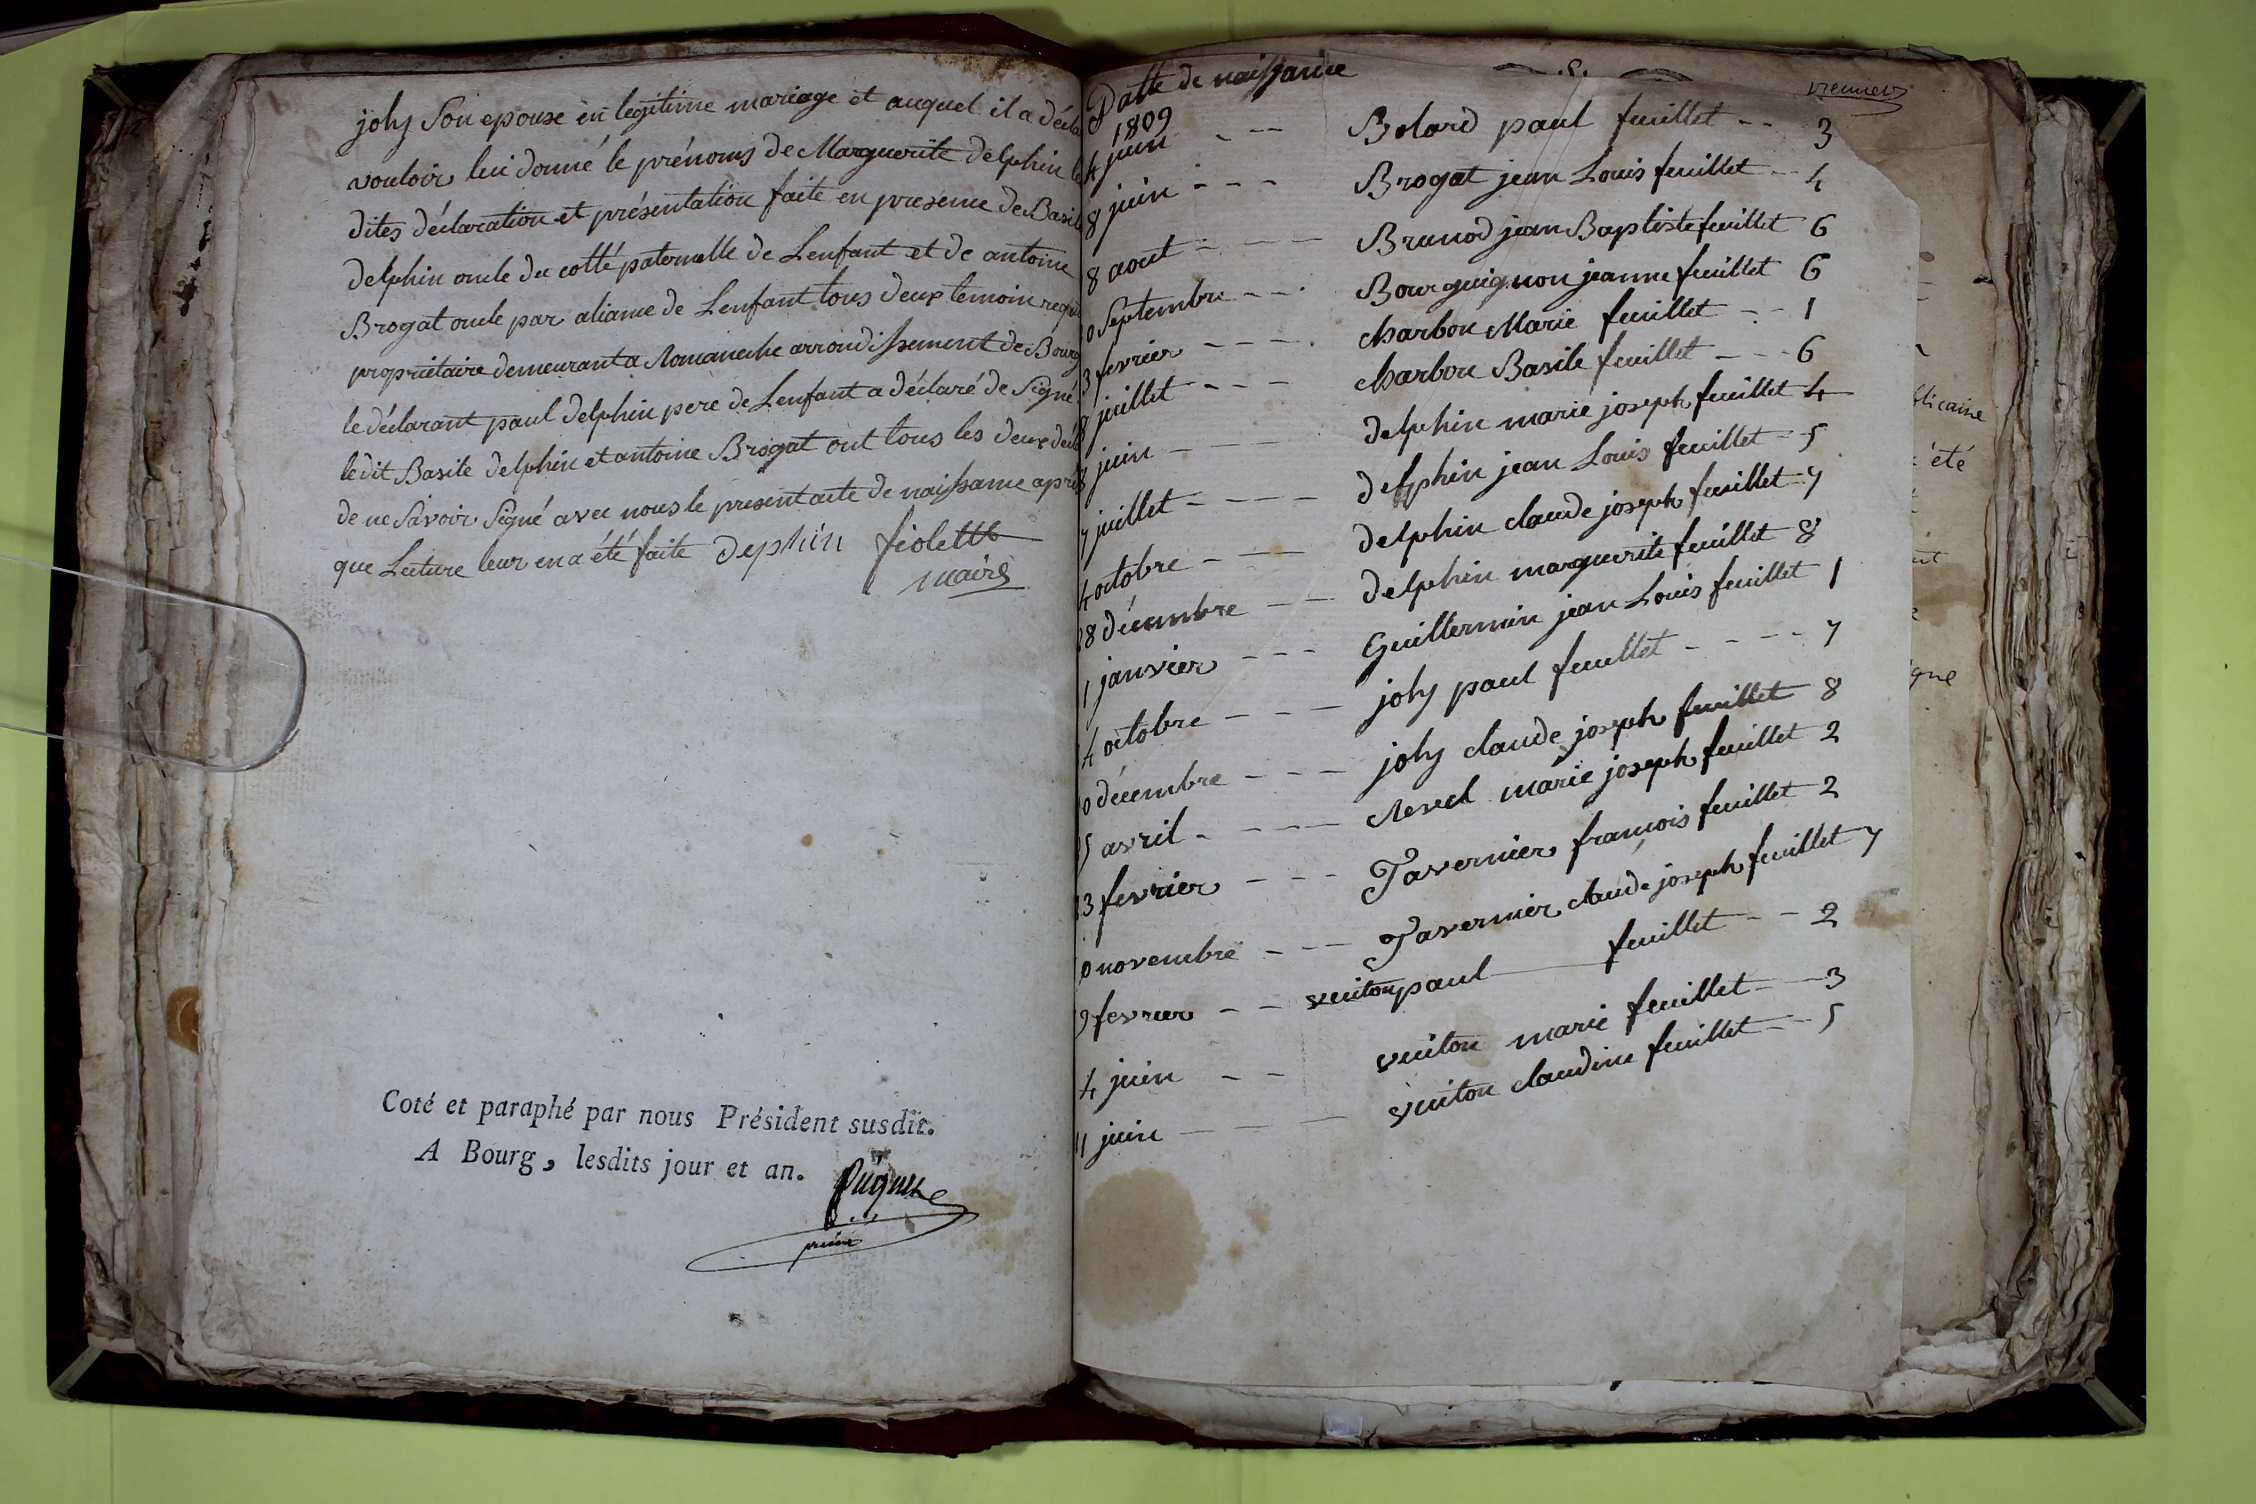 joly Son epouse en legitime mariage et auquel il a décla
vouloir lui donné le prénoms de Marguerite delphin le
dites déclaration et présentation faite en presence de Basile
delphin oncle du cotté paternelle de Lenfant et de antoine
Brogat oncle par aliance de Lenfant tous deux temoin requ
propriétaire demeurant a Romaneche arrondissement de Bourg
le déclarant paul delphin pere de Lenfant a déclaré de Signé
ledit Basile delphin et antoine Brogat ont tous les deux décla
de ne Savoir Signé avec nous le present acte de naissance après
que Lecture leur en a été faite dephin fiolette
maire
Coté et paraphé par nous Président susdit.
A Bourg, lesdits jour et an.
Datte de naissance
1809
4 juin - - - Bolard paul feuillet - - 3
8 juin - - - Brogat jean Louis feuillet - - 4
8 aout - - - Brunod jean Baptiste feuillet 6
0 Septembre - - - Bourguignon jeanne feuillet 6
3 fevrier - - - - charbon Marie feuillet - - 1
8 juillet - - - charbon Basile feuillet - - - 6
8 juin - - - delphin marie joseph feuillet 4
7 juillet - - - - delphin jean Louis feuillet - 5
4 octobre - - - delphin claude joseph feuillet 7
28 décembre - - delphin marguerite feuillet 8
1 janvier - - - Guillermin jean Louis feuillet 1
4 octobre - - - - joly paul feuillet - - - - 7
0 décembre - - - - joly claude joseph feuillet 8
5 avril - - - - Revel marie joseph feuillet 2
3 fevrier - - - - Tavernier francois feuillet 2
0 novembre - - - Tavernier claude joseph feuillet 7
9 fevrier - - vuiton paul feuillet - - 2
4 juin - - vuiton marie feuillet - 3
11 juin - - - - vuiton claudine feuillet - - 5